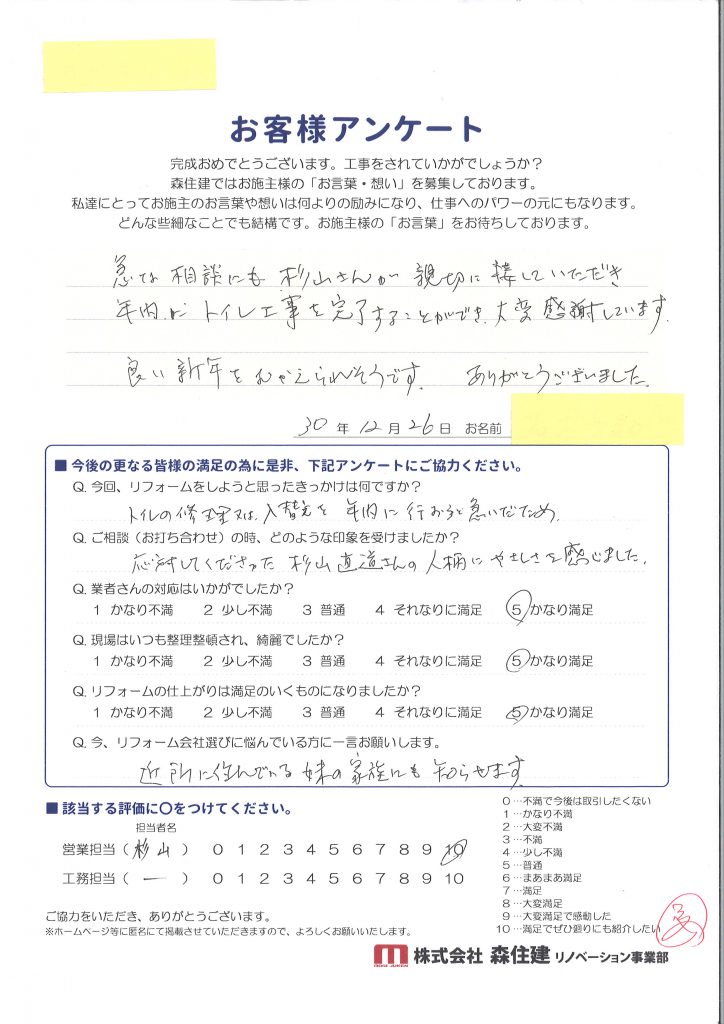 お客様アンケート
完成おめでとうございます。工事をされていかがでしょうか？
森住建ではお施主様の「お言葉・想い」を募集しております。
私達にとってお施主のお言葉や想いは何よりの励みになり、仕事へのパワーの元にもなります。
どんな些細なことでも結構です。お施主様の「お言葉」をお待ちしております。
急な相談にも杉山さんが親切に接していただき
年内にトイレ工事を完了することができ、大変感謝しています。
良い新年をむかえられそうです。 ありがとうございました。
30年12月26日 お名前
■ 今後の更なる皆様の満足の為に是非、下記アンケートにご協力ください。
Q. 今回、リフォームをしようと思ったきっかけは何ですか？
トイレの修理又は入替えを年内に行おうと急いだため。
Q. ご相談（お打ち合わせ）の時、どのような印象を受けましたか？
応対してくださった杉山直道さんの人柄にやさしさを感じました。
Q. 業者さんの対応はいかがでしたか？
1 かなり不満 2 少し不満 3 普通 4 それなりに満足 5 かなり満足
Q. 現場はいつも整理整頓され、綺麗でしたか？
1 かなり不満 2 少し不満 3 普通 4 それなりに満足 5 かなり満足
Q. リフォームの仕上がりは満足のいくものになりましたか？
1 かなり不満 2 少し不満 3 普通 4 それなりに満足 5 かなり満足
Q. 今、リフォーム会社選びに悩んでいる方に一言お願いします。
近所に住んでいる妹の家族にも知らせます
■ 該当する評価に〇をつけてください。
担当者名
営業担当（杉山） 0 1 2 3 4 5 6 7 8 9 10
工務担当（ー） 0 1 2 3 4 5 6 7 8 9 10
0…不満で今後は取引したくない
1…かなり不満
2…大変不満
3…不満
4…少し不満
5…普通
6…まあまあ満足
7…満足
8…大変満足
9…大変満足で感動した
10…満足でぜひ廻りにも紹介したい
ご協力をいただき、ありがとうございます。
※ホームページ等に匿名にて掲載させていただきますので、よろしくお願いいたします。
株式会社 森住建 リノベーション事業部